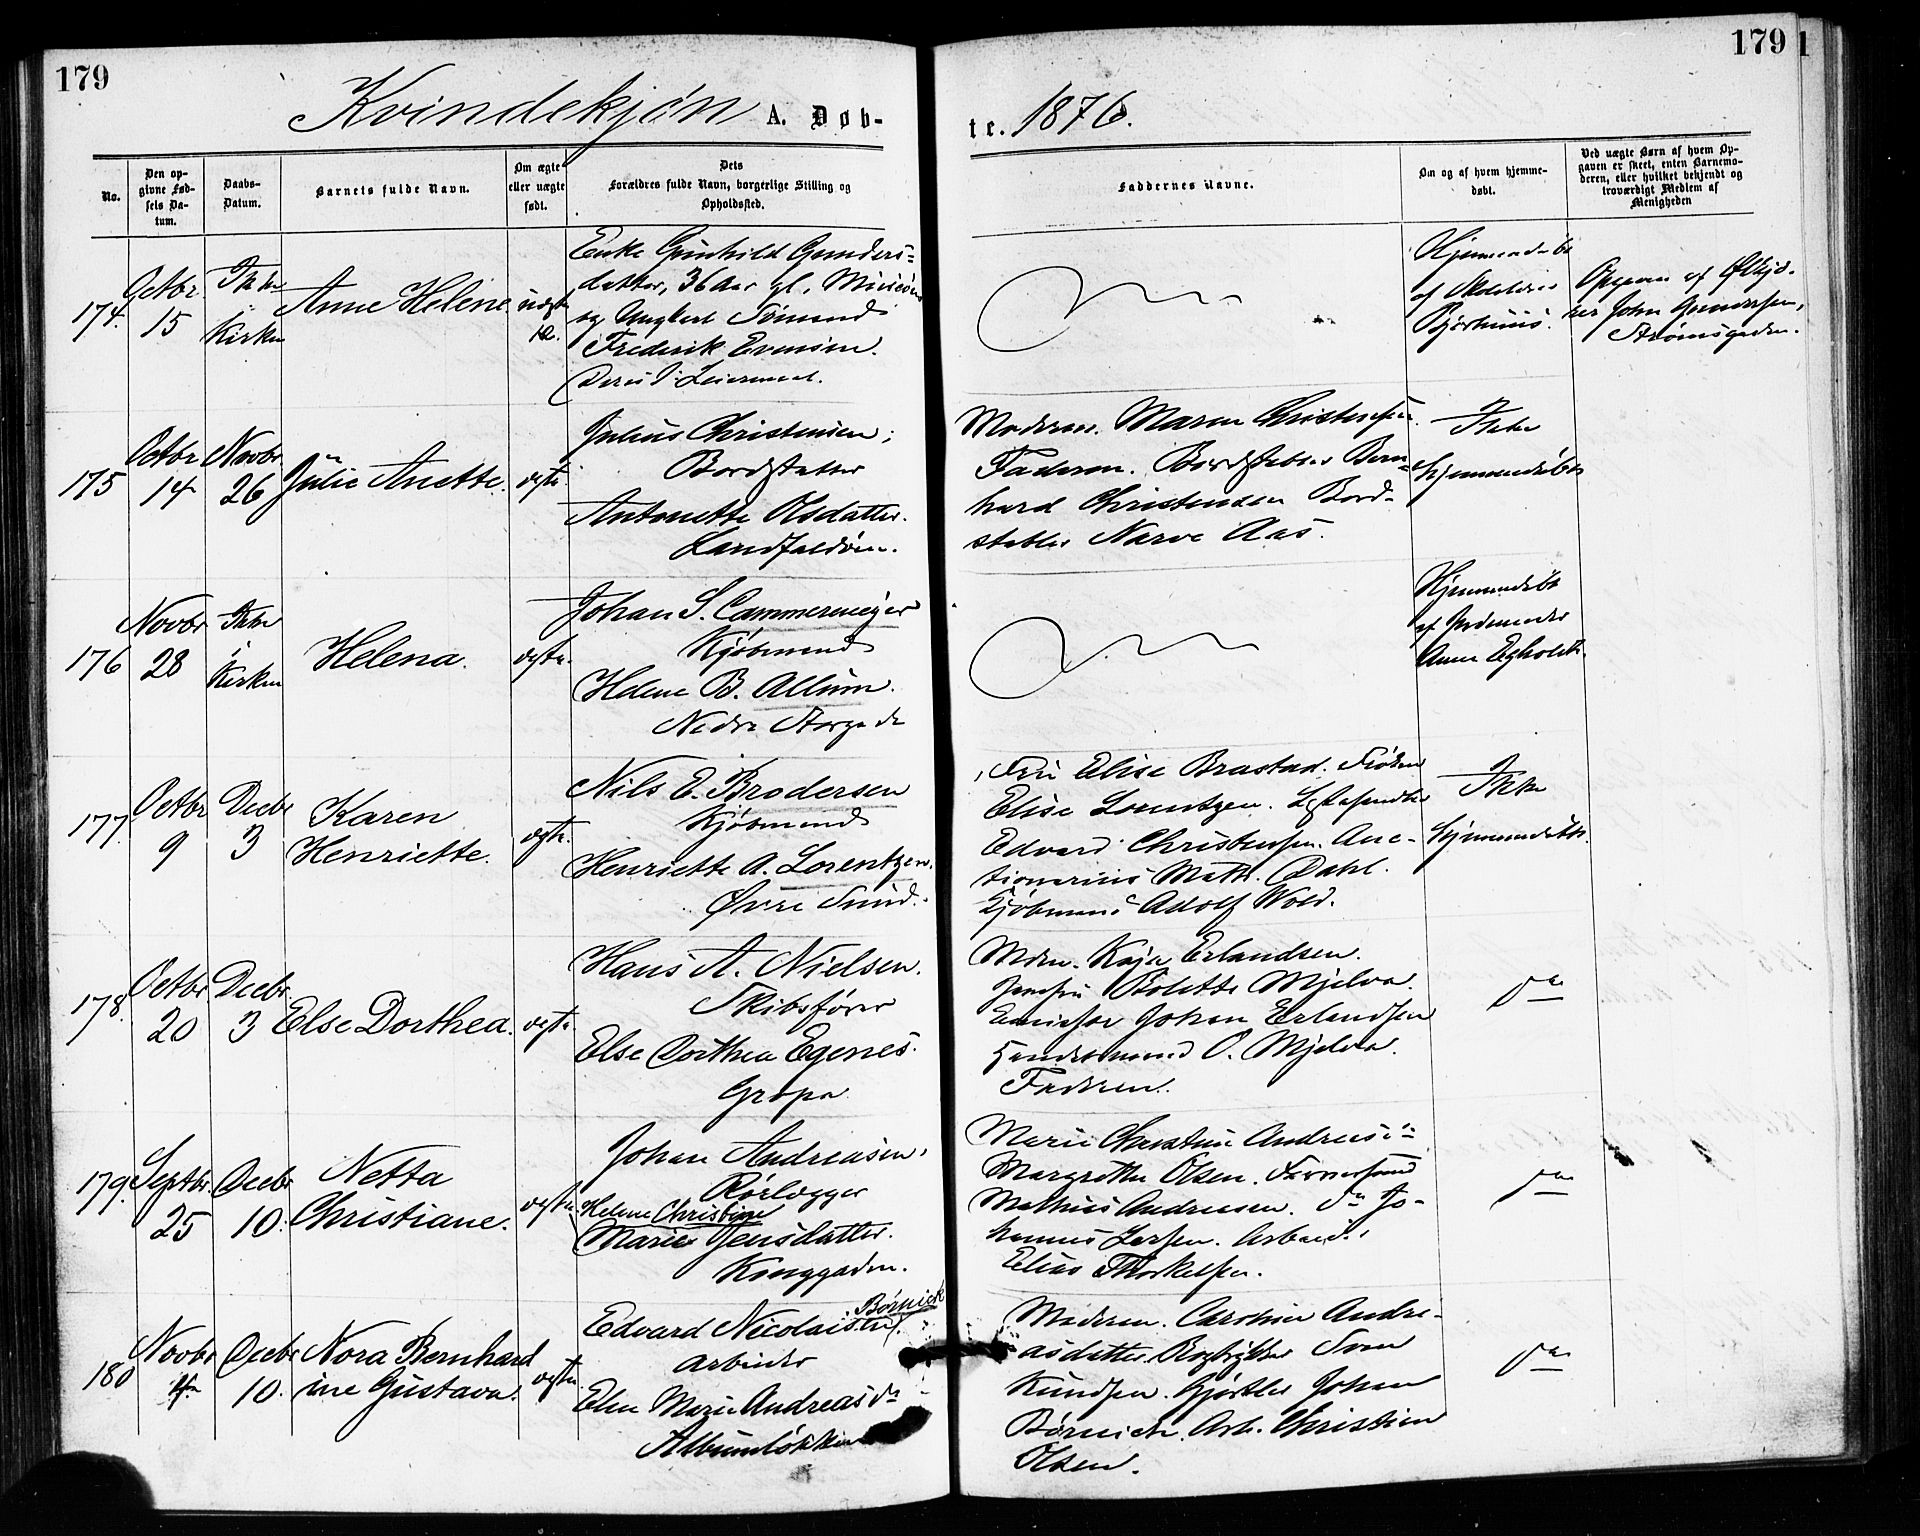 179
179
1
Kvindekjøn A. Døb-
te. 1876.
No.
Den op-
givne Fød-
sels Da-
tum.
Daabs-
Datum.
Barnets fulde Navn.
Om ægte
eller uægte
født.
Dets
Forældres fulde Navn, borgerlige Stilling og
Opholdssted.
Faddernes Navne.
Om og af hvem hjemme-
døbt.
Ved uægte Børn af hvem Op-
gaven er skeet, enten Barnemo-
deren, eller hvilket bekjendt og
troværdigt Medlem af
Menigheden
174.
Octbr
15
Ikke
i
Kirken
Anne Helene
uægte
Enke Gunhild Gunders-
datter, 36 Aar gl.
og Ungkarl Sømand
Frederik Evensen.
Deres 1. Leiermaal.
Hjemmedøbt
af
Bjørhuus.
Opgaven af
John Gundersen,
Strømsgaden.
175
Octbr
14
Novbr
26
Julie Anette.
ægte
Julius Christensen,
Bordstabler
Antonette Olsdatter.
Landfaldøen.
Moderen. Maren Christensen
Faderen. Bordstabler Bern-
hard Christensen Bord-
stabler Narve Aas.
Ikke
hjemmedøbt
176
Novbr
28
Ikke
i
Kirken
Helena.
ægte.
Johan S. Cammermeyer
Kjøbmand
Helene B. Allum.
Nedre Storgade
Hjemmedøbt
af Jordemoder
Anna Egholdt.
177.
Octbr
9
Decbr
3
Karen
Henriette.
ægte.
Nils E. Brodersen
Kjøbmand
Henriette A. Lorentzen.
Øvre Sund.
Fru Elise Brastad. Frøken
Elise Lorentzen.
Edvard Christensen. Auc-
tionarius Math. Dahl.
Kjøbmand Adolf Wold.
Ikke
hjemmedøbt.
178.
Octbr
20
Decbr.
3
Else Dorthea.
ægte
Hans A. Nielsen.
Skibsfører
Else Dorthea Egenes.
Gropa
Mdm. Kaja Erlandsen.
Jomfru Bolette Mjelva.
Johan Erlandsen
Handelsmand O. Mjelva.
Faderen.
do
179.
Septbr
25
Decbr
10.
Netta
Christiane.
ægte
Johan Andreasen,
Rørlægger
Helene Christine
Marie Jensdatter.
Konggaden.
Marie Christine Andreasen
Margrethe Olsen.
Mathias Andreasen. do Jo-
hannes Larsen. Arbeid.
Elias Thorkelsen.
do
180
Novbr
4
Decbr
10.
Nora Bernhard
ine Gustava.
ægte
Edvard Nicolaisen Børnick
Arbeider
Elen Marie Andreasd.
Albumløkken
Moderen. Caroline Andre-
asdatter. Bogtrykker Sven
Knudsen. Gjørtler Johan
Børnich. Arb. Christian
Olsen.
do